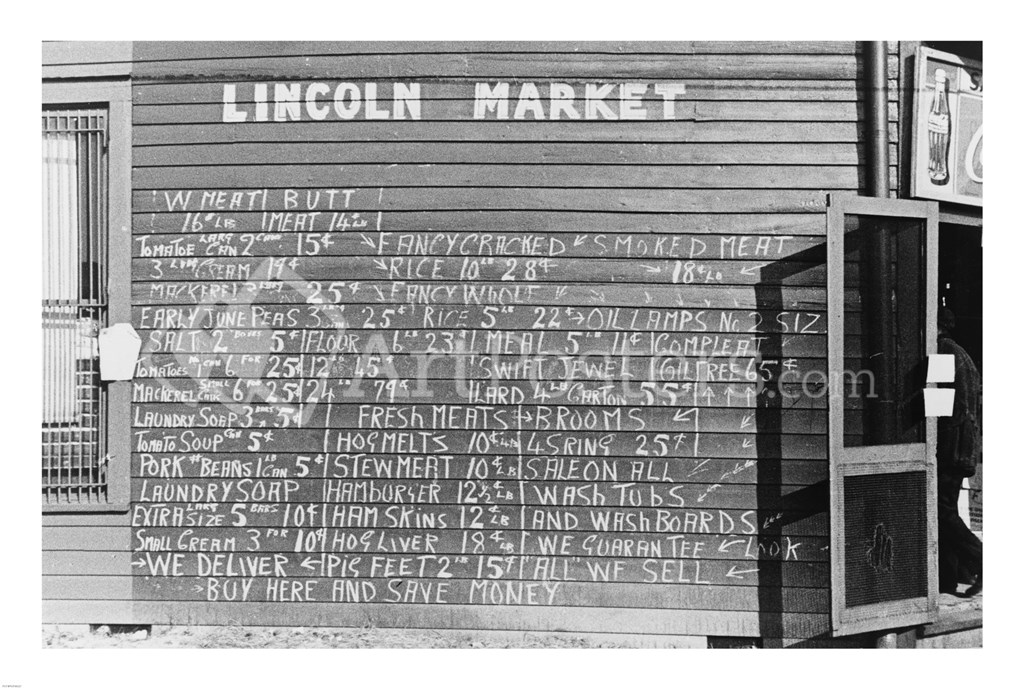 LINCOLN MARKET
W MEAT BUTT
16¢ LB MEAT 14¢ LB
TOMATOE LARG CAN 2 15¢ FANCY CRACKED SMOKED MEAT
3 CREAM 19¢ RICE 10 LB 28¢ 18¢ LB
MACKEREL 25¢ FANCY WHOLE
EARLY JUNE PEAS 3 25¢ RICE 5 LB 22¢ OIL LAMPS No 2 SIZ
SALT 2 BOXES 5¢ FLOOR 6 LB 23¢ MEAL 5 LB 11¢ COMPLEAT
TOMATOES 1 CAN 6 FOR 25¢ 12 LB 45¢ SWIFT JEWEL OIL FREE 65¢
MACKEREL SMALL CANS 6 FOR 25¢ 24 LB 79¢ LARD 4 LB CARTON 55¢
LAUNDRY SOAP 3 BARS 5¢ FRESH MEATS BROOMS
TOMATO SOUP CAN 5¢ HOG MELTS 10¢ LB 4 SRING 25¢
PORK # BEANS 1 LB CAN 5¢ STEW MEAT 10¢ LB SALE ON ALL
LAUNDRY SOAP HAMBURGER 12½ LB WASH TUBS
EXTRA LARG SIZE 5 BARS 10¢ HAM SKINS 12¢ LB AND WASH BOARDS
SMALL CREAM 3 FOR 10¢ HOG LIVER 18¢ LB WE GUARANTEE LOOK
WE DELIVER PIG FEET 2 LB 15¢ "ALL" WE SELL
BUY HERE AND SAVE MONEY